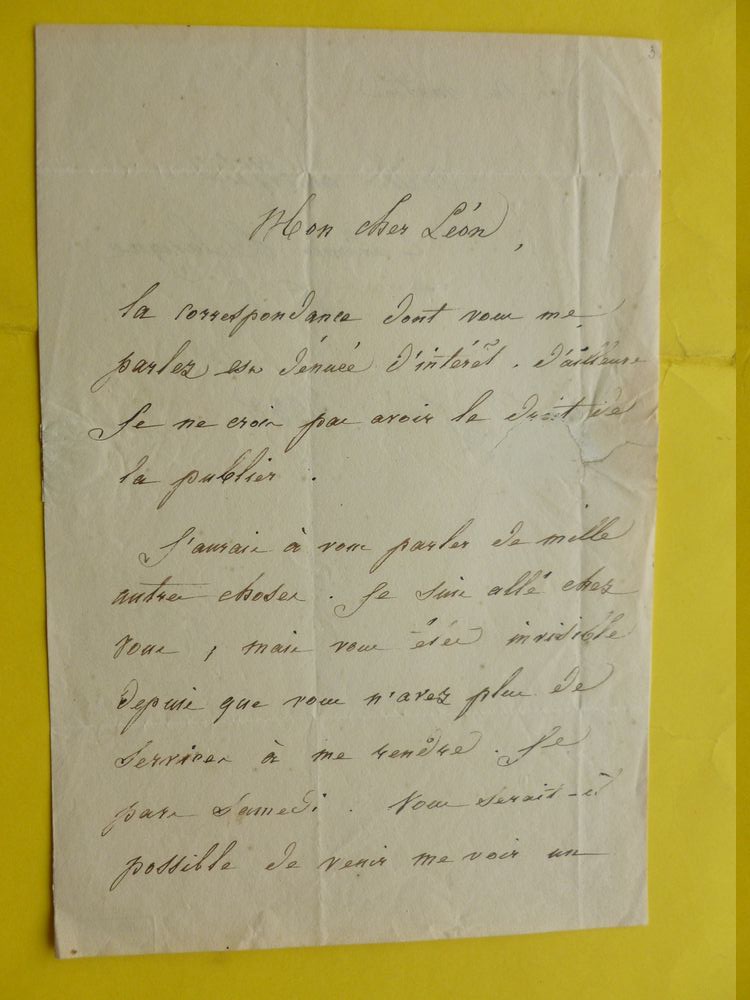 3
Mon cher Léon,
la correspondance dont vous me
parlez est dénuée d'intérêt. D'ailleurs
Je ne crois pas avoir le droit de
la publier.
J'aurais à vous parler de mille
autres choses. Je suis allé chez
vous, mais vous êtes invisible
depuis que vous n'avez plus de
services à me rendre. Je
pars Samedi. Vous serait-il
possible de venir me voir un